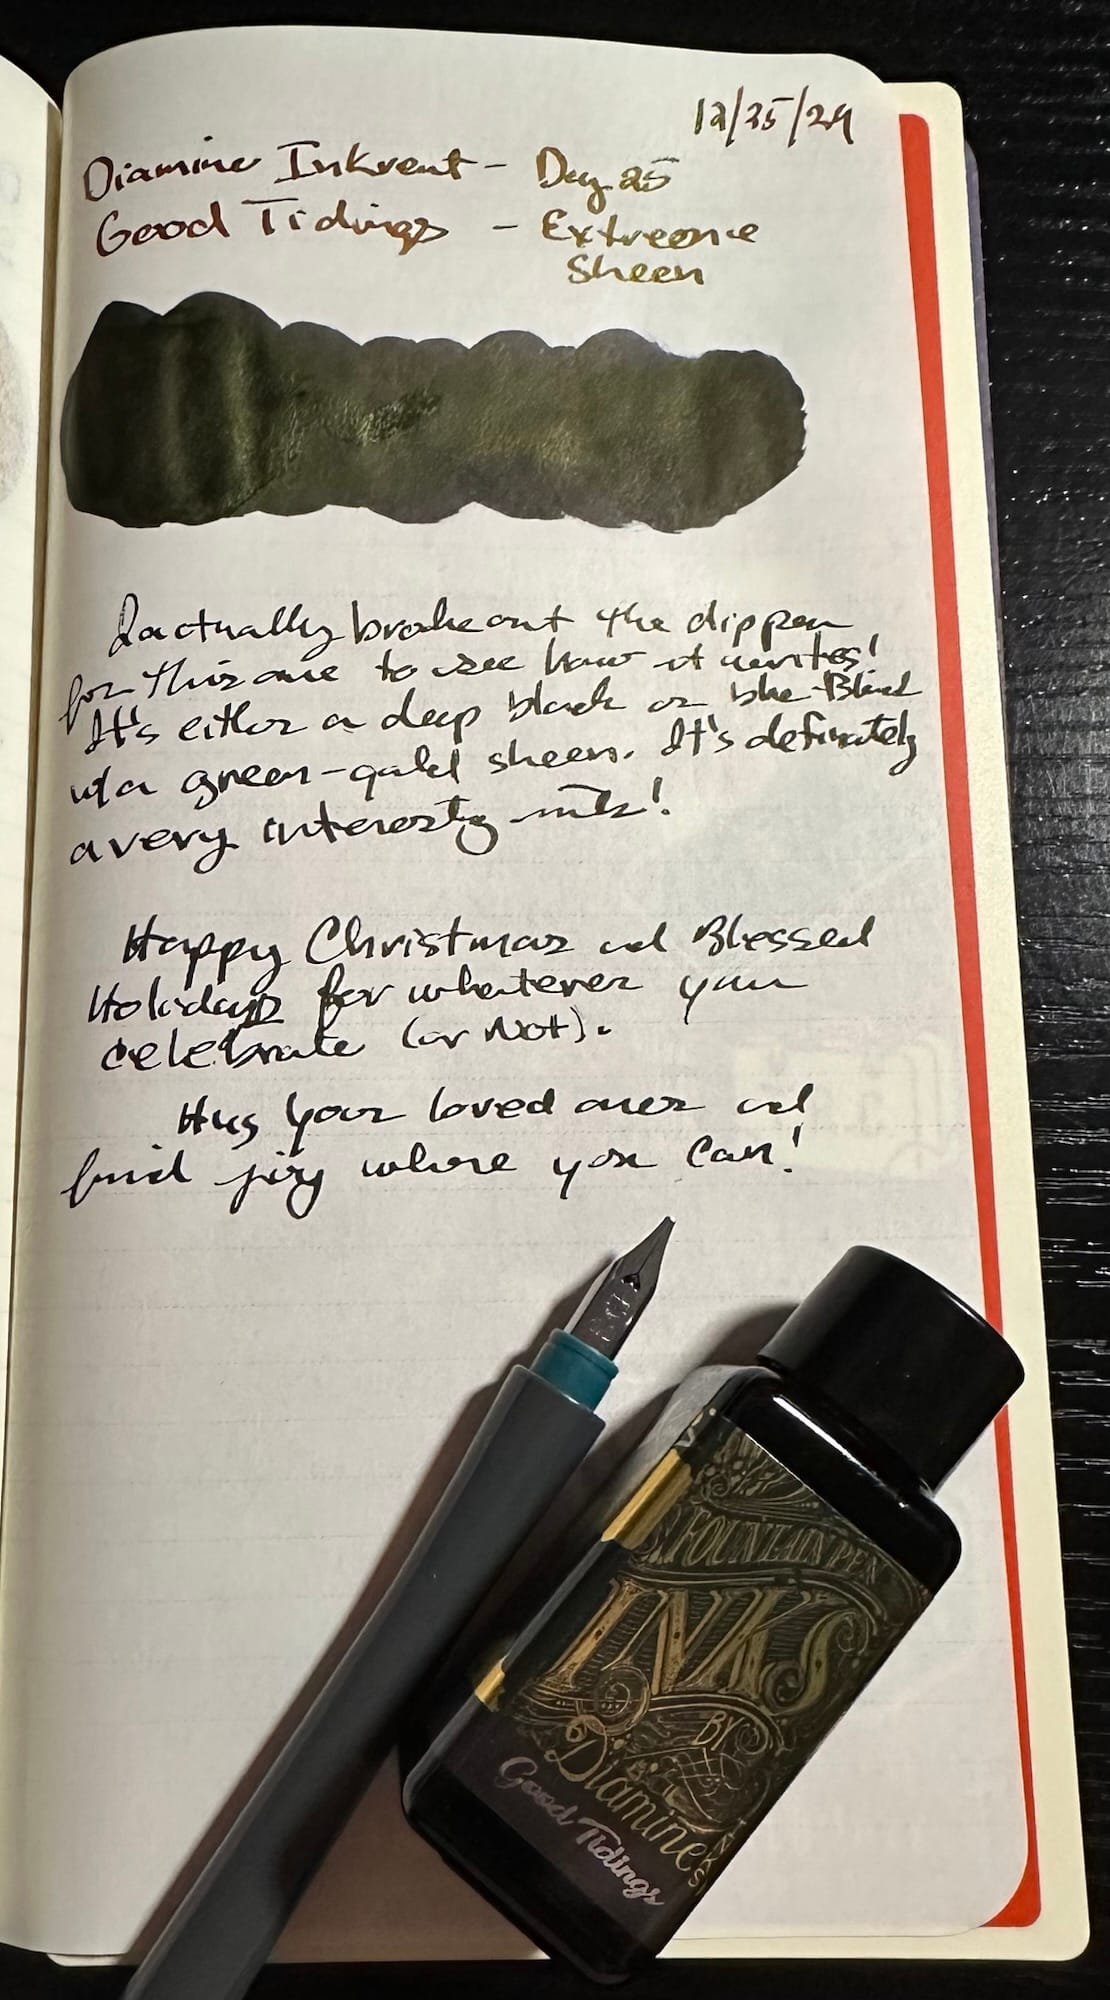 12/25/24
Diamine Inkvent - Day 25
Good Tidings - Extreme
Sheen
I actually broke out the dip pen
for this one to see how it writes!
It's either a deep black or blue-Black
w/a green-gold sheen. It's definately
a very interestg ink!
Happy Christmas and Blessed
Holidays for whatever you
celebrate (or Not).
Hug your loved ones and
find joy where you can!
FOUNTAIN PEN
INKS
BY
Diamine
Good Tidings